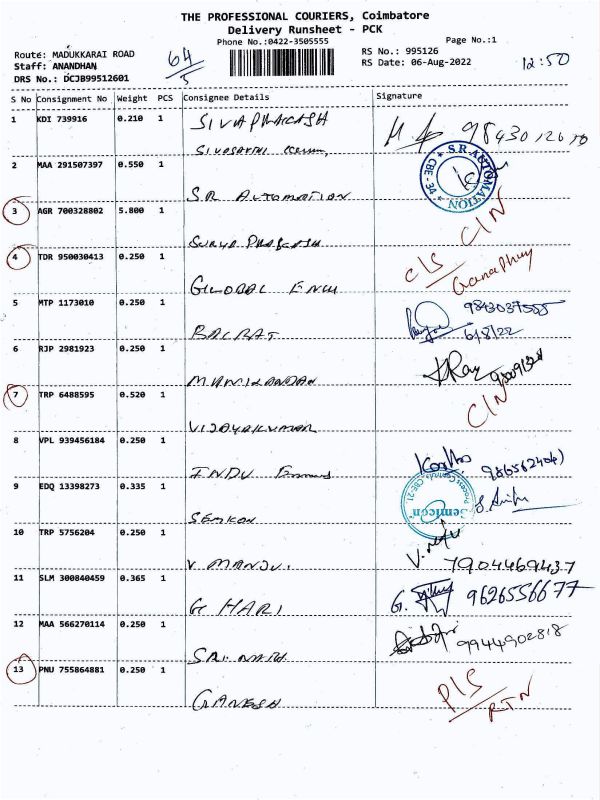 THE PROFESSIONAL COURIERS, Coimbatore
Delivery Runsheet - PCK
Phone No.:0422-3505555
Page No.:1
Route: MADUKKARAI ROAD
Staff: ANANDHAN
DRS No.: DCJB99512601
64/5
RS No.: 995126
RS Date: 06-Aug-2022
12:50
S No Consignment No Weight PCS Consignee Details Signature
1 KDI 739916 0.210 1 SIVAPRAKASH
SIVASAKTHI
2 MAA 291507397 0.550 1 SR AUTOMATION
S.R AUTOMATION CBE-34
3 AGR 700328802 5.800 1 SURYA PRAKASH C/N
4 TDR 950030413 0.250 1 GLOBAL ENGG C/S
5 MTP 1173010 0.250 1 BALRAJ 9843037555
6/8/22
6 RJP 2981923 0.250 1 MANIKANDAN
7 TRP 6488595 0.520 1 VIJAYAKUMAR C/N
8 VPL 939456184 0.250 1 INDU
9 EDQ 13398273 0.335 1 SEMKON
Semicon Process Controls CBE-21
10 TRP 5756204 0.250 1 V. MANJU. 7904469437
11 SLM 300840459 0.365 1 G HARI G. 9626556677
12 MAA 566270114 0.250 1 SRI NATH 9944902818
13 PNU 755864881 0.250 1 GANESH P/S
RTN